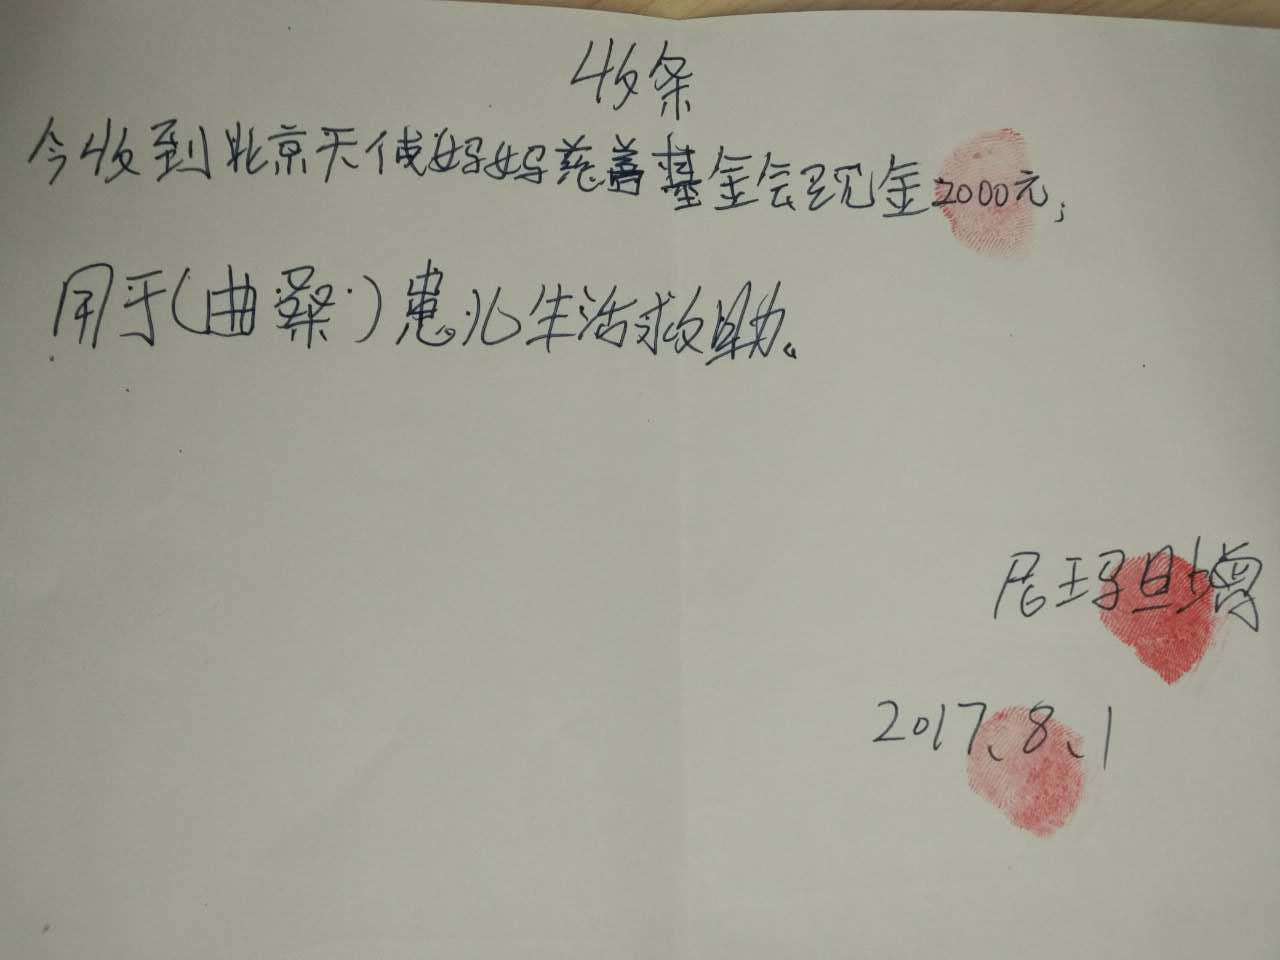 收条
今收到北京天使妈妈慈善基金会现金2000元;
用于(曲桑)患儿生活救助。
尼玛旦增
2017、8、1